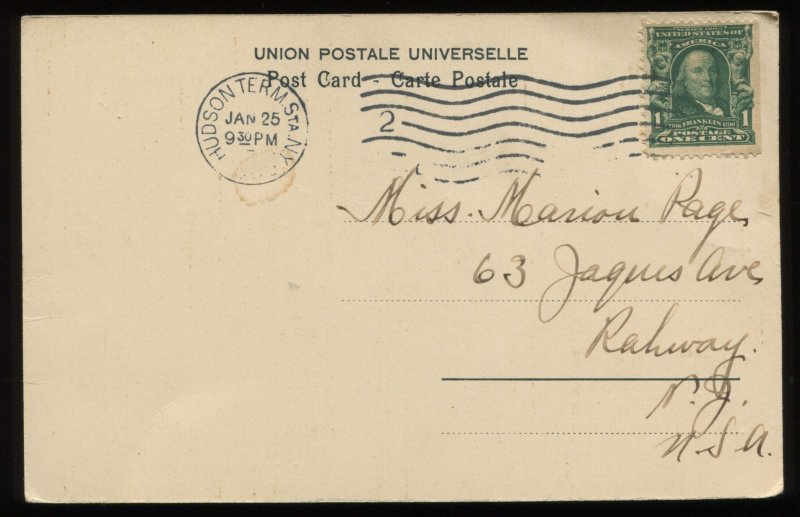 UNION POSTALE UNIVERSELLE
Post Card - Carte Postale
HUDSON TERM. STA. N.Y.
JAN 25
9 30 PM
2
SERIES 1902
UNITED STATES OF
AMERICA
1706 FRANKLIN 1790
1 POSTAGE 1
ONE CENT
Miss. Marion Page,
63 Jaques Ave,
Rahway.
N. J.
U S A.